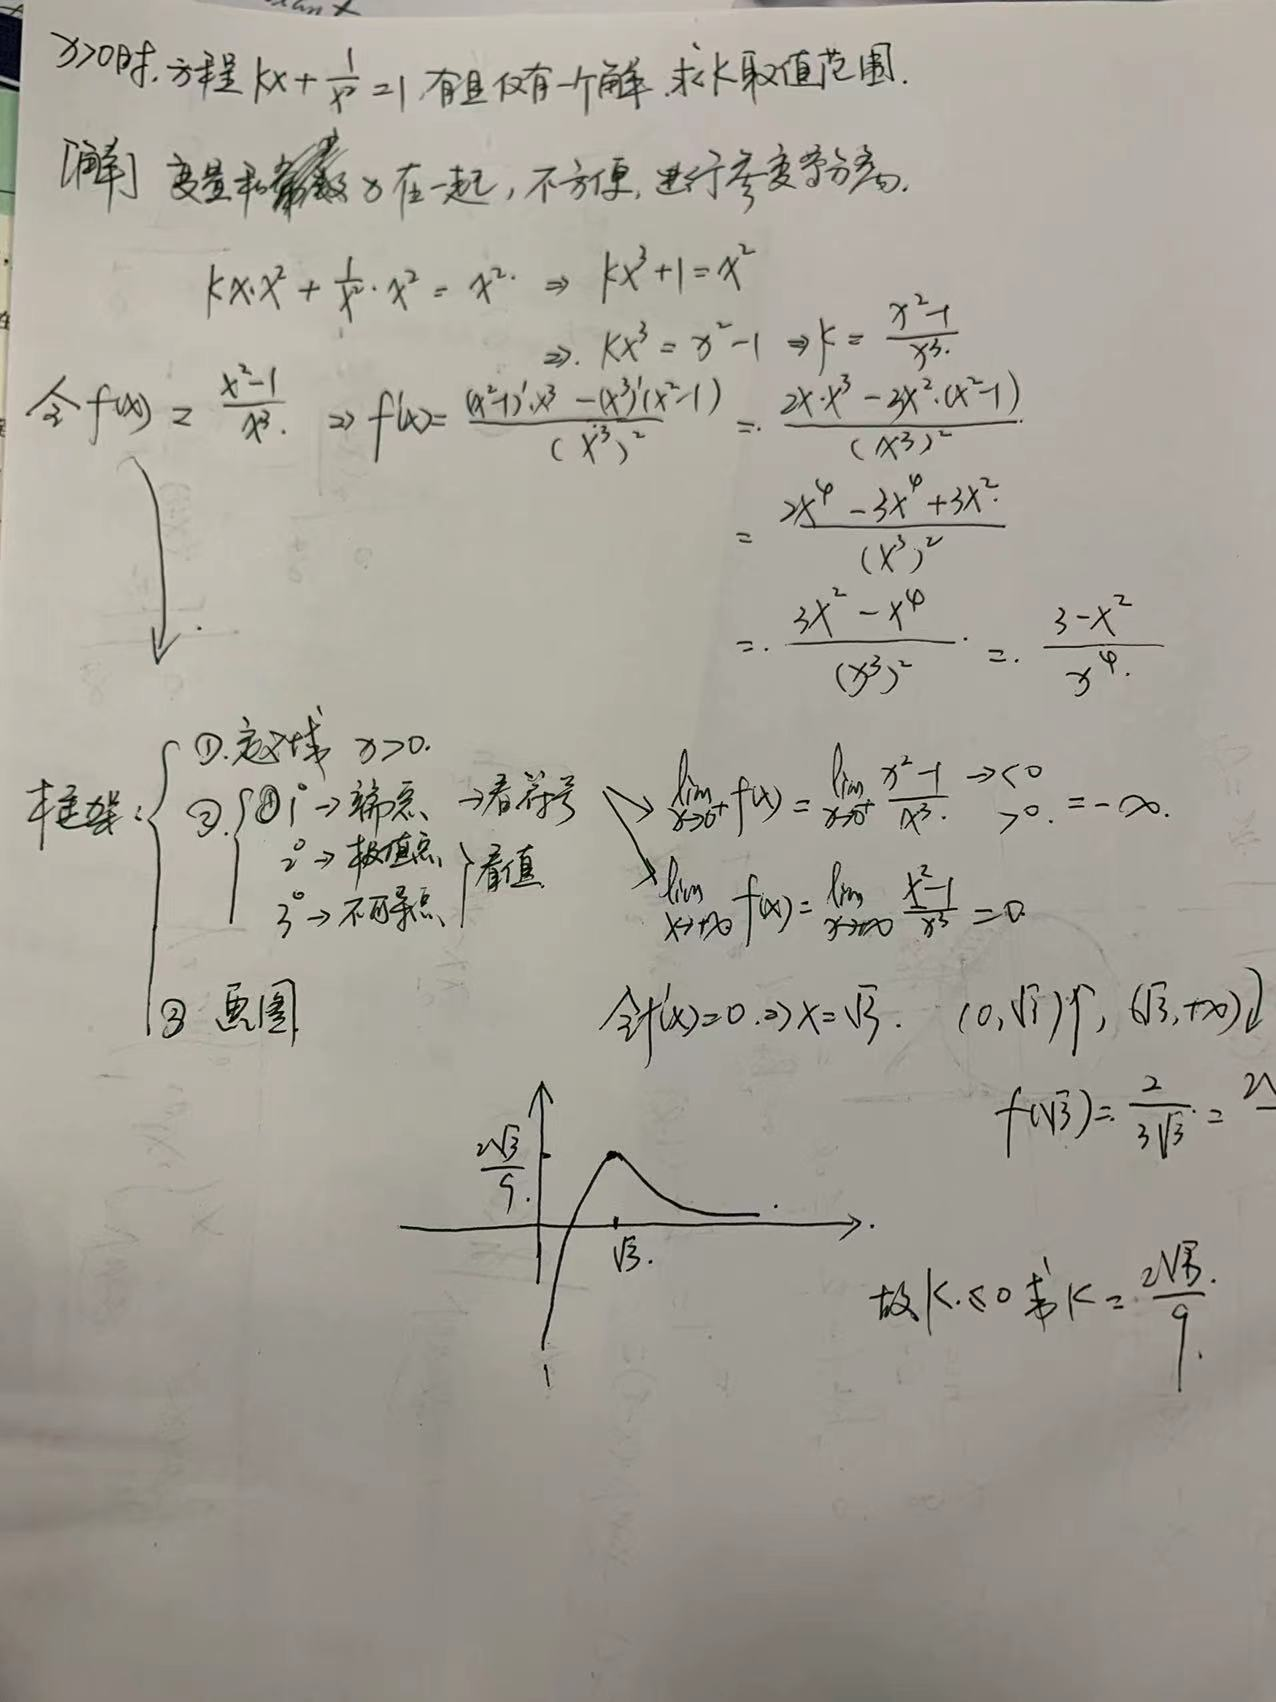 x>0时,方程 kx+1/x²=1 有且仅有一个解.求k取值范围.
[解] 变量和 x在一起,不方便,进行参变分离.
kx·x²+1/x²·x²=x². ⇒ kx³+1=x²
⇒. kx³=x²-1 ⇒k=(x²-1)/x³.
令f(x)=(x²-1)/x³. ⇒ f'(x)=((x²-1)'·x³-(x³)'(x²-1))/(x³)² =. (2x·x³-3x²·(x²-1))/(x³)²
=(2x⁴-3x⁴+3x²)/(x³)²
=.(3x²-x⁴)/(x³)². =.(3-x²)/x⁴.
框架:
①.定义域 x>0.
②. 1°→端点 →看符号
2°→极值点
3°→不可导点 看值
③ 画图
lim x→0⁺ f(x)=lim x→0⁺ (x²-1)/x³. →<0 >0. =-∞.
lim x→+∞ f(x)=lim x→+∞ (x²-1)/x³=0.
令f'(x)=0.⇒x=√3. (0,√3)↑, (√3,+∞)↓
f(√3)=.2/(3√3)=
2√3/9.
√3.
故k≤0或k=2√3/9.